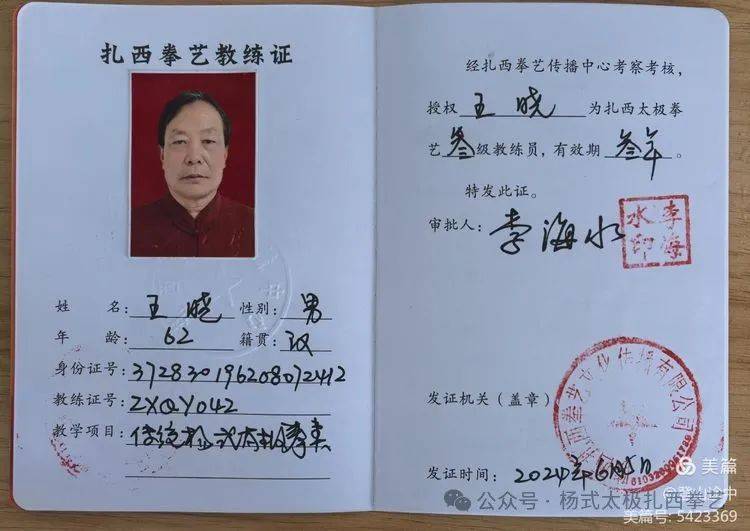 扎西拳艺教练证
姓 名：王晓 性别：男
年 龄：62 籍贯：汉
身份证号：372830196208072412
教练证号：ZXQY042
教学项目：传统杨式太极拳
经扎西拳艺传播中心考察考核，
授权 王晓 为扎西太极拳
艺叁级教练员，有效期 叁年 。
特发此证。
审批人：李海水
李海
水印
发证机关（盖章）
扎西拳艺文化传播有限公司
发证时间：2024年6月5日
美篇
公众号·杨式太极扎西拳艺
美篇号：5423369